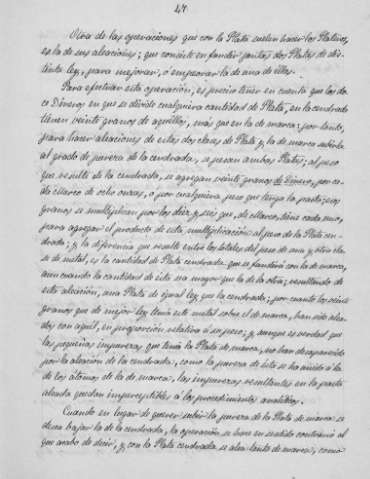 47
Otra de las operaciones que con la Plata suelen hacer los Plateros,
es la de sus aleaciones; que consiste en fundir juntas dos Platas de dis-
tinta ley, para mejorar, o empeorar la de una de ellas.
Para efectuar esta operación, es preciso tener en cuenta que los do-
ce Dineros en que se divide cualquiera cantidad de Plata, en la cendrada
tienen veinte granos de aquellos, más que en la de marca: por tanto,
para hacer aleaciones de estas dos clases de Plata y la de marca subirla
al grado de pureza de la cendrada, se pesan ambas Platas; al peso
que resulte de la cendrada, se agregan veinte granos de Dinero, por ca-
da Marco de ocho onzas, o por cualquiera peso que tenga la pasta; esos
granos se multiplican por los diez y seis que, de Marco, tiene cada uno,
para agregar el producto de esta multiplicación al peso de la Plata cen-
drada; y la diferencia que resulte entre los totales del peso de una y otra clase
de metal, es la cantidad de Plata cendrada que se fundirá con la de marca,
aun cuando la cantidad de ésta sea mayor que la de la otra; resultando de
esta aleación, una Plata de igual ley que la cendrada; por cuanto los veinte
granos que de mejor ley tenía este metal sobre el de marca, han sido alea-
dos con aquél, en proporción relativa a su peso; y aunque es verdad que
las pequeñas impurezas que tenía la Plata de marca, no han desaparecido
por la aleación de la cendrada, como la pureza de ésta se ha unido a la
de los átomos de la de marca, las impurezas resultantes en la pasta
aleada quedan imperceptibles á los procedimientos analíticos.
Cuando en lugar de querer subir la pureza de la Plata de marca se
desea bajar la de la cendrada, la operación se hace en sentido contrario al
que acabo de decir, y con la Plata cendrada se alea tanta de marca, como